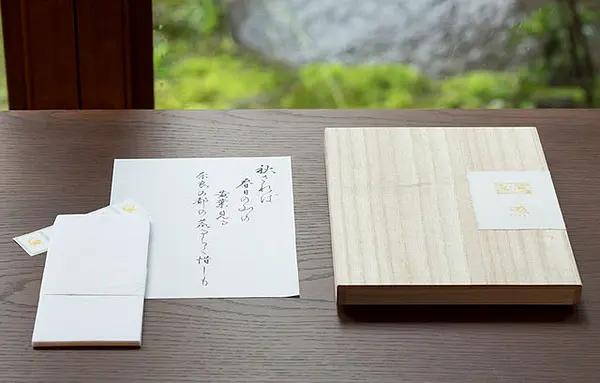 秋されば
春日の山の
黄葉見る
奈良の都の荒るらく惜しも